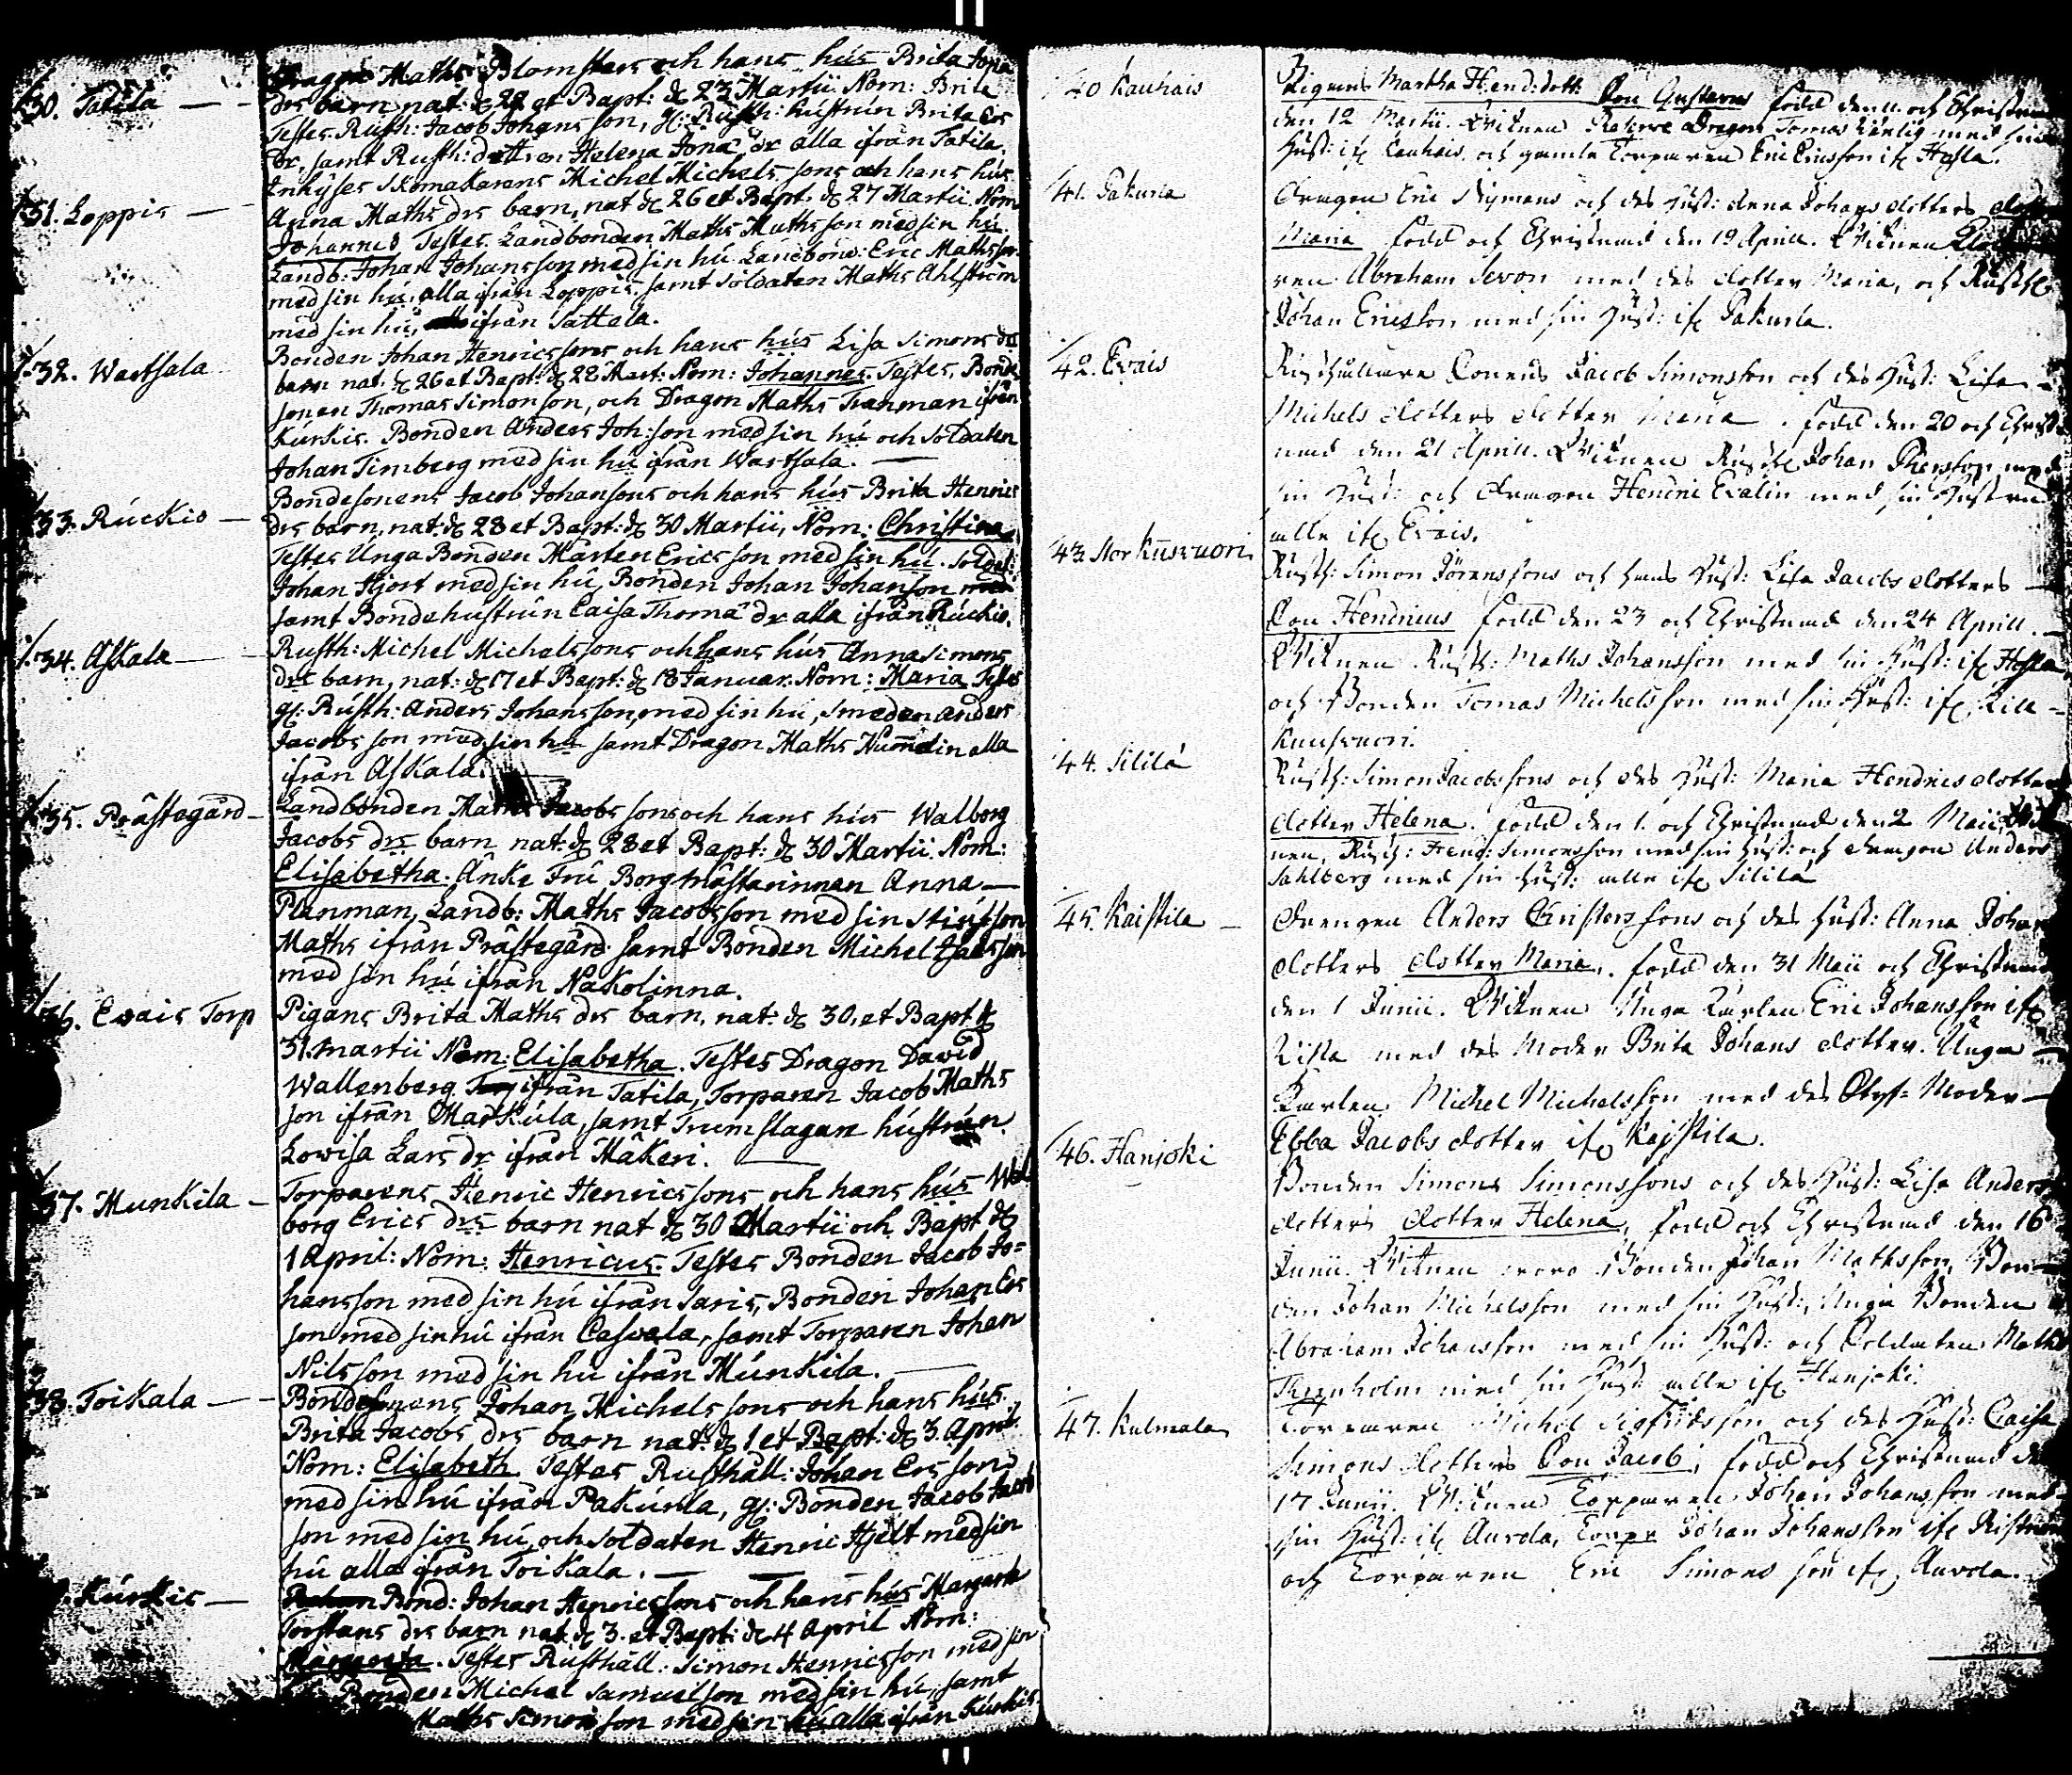 30. Tatila — Dragon Maths Blomsters och hans hús Brita Jona
drs barn, nat: d. 22 et Bapt: d. 23 Martii. Nom: Brita
Testes. Rusth: Jacob Johans son, gl: Rusth: hústrún Brita Ers
dr, samt Rusth: dottren Helena Jona dr alla ifrån Tatila.
Inhyses skomakarens Michel Michels sons och hans hús
31. Loppis — Anna Maths drs barn, nat d. 26 et Bapt. d. 27 Martii. Nom
Johannes Testes. Landbonden Maths Mathsson med sin hú.
Landb: Johan Johansson med sin hú Landbond: Eric Mathsson
med sin hú, alla ifrån Loppis. samt soldaten Maths Ahlström
med sin hú, ifrån Sattala.
32. Wartsala Bonden Johan Henrics sons och hans hús Lisa Simons drs
barn nat: d. 26 et Bapt: d. 28 Mart: Nom: Johannes. Testes, Bonde
sonen Thomas Simonson, och Dragon Maths Tranman ifrån
Kúrkis. Bonden Anders Joh:son med sin hú och soldaten
Johan Timberg med sin hú ifrån Wartsala. —
Bondesonens Jacob Johansons och hans hús Brita Henrics
33. Rúckis — drs barn, nat: d. 28 et Bapt: d. 30 Martii, Nom: Christina
Testes Unga Bonden Mårten Ericsson med sin hú. Soldat:
Johan Hjort med sin hú, Bonden Johan Johanson
samt Bondehustrún Caisa Thoma dr alla ifrån Rúckis.
34. Askala — Rusth: Michel Michelssons och hans hús Anna Simons
drs barn, nat: d. 17 et Bapt: d. 18 Januar. Nom: Maria Testes
gl: Rústh: Anders Johansson, med sin hú, Smeden Anders
Jacobs son med sin hú samt Dragon Maths Numelin alla
ifrån Askala.
35. Prästegård — Landbonden Maths Jacobs sons och hans hús Walborg
Jacobs drs barn nat: d. 28 et Bapt: d. 30 Martii. Nom:
Elisabetha. Änke Frú Borgmästarinnan Anna —
Planman, Landb: Maths Jacobsson med sin stiúfson
Maths ifrån Prästegård samt Bonden Michel Isacsson
med sin hú ifrån Nakolinna.
36. Evais Torp Pigans Brita Maths drs barn, nat: d. 30, et Bapt d.
31. Martii Nom: Elisabetha. Testes Dragon David
Wallenberg ifrån Tatila, Torparen Jacob Maths
son ifrån Markúla, samt Trumslagare hústrún
Lovisa Lars dr ifrån Mäkeri. —
37. Munkila — Torparens Henric Henricssons och hans hús Wal
borg Erics drs barn nat d. 30 Martii och Bapt d.
1 April: Nom: Henricus. Testes Bonden Jacob Jo=
hansson med sin hú ifrån Saris, Bonden Johan Ers
son med sin hú ifrån Casvala, samt Torparen Johan
Nilsson med sin hú ifrån Múnkila. —
38. Toikala — Bondesonens Johan Michels sons och hans hús
Brita Jacobs drs barn nat: d. 1 et Bapt: d. 3. April
Nom: Elisabeth Testes Rusthåll: Johan Ers son
med sin hú ifrån Pakúrla, gl: Bonden Jacob Jacob
son med sin hú, och soldaten Henric Hjelt med sin
hú alla ifrån Toikala. —
Kúrkis — Bond: Johan Henrics sons och hans hús Margareta
Torstans drs barn nat d. 3. et Bapt: d. 4 April Nom:
Margareta. Testes Rusthåll: Simon Henricsson med sin
Bonden Michel Samuelson med sin hú, samt
Maths Simonsson med sin hú alla ifrån Kúrkis.
40 Kauhais Pigans Martha Hend: dott: Son Gustavus född den 11. och Christnad
den 12 Martii. Witnen Reserve Dragon Tomas med sin
Hust: if. Kauhais, och gamle Torparen Eric Ericsson if. Hasla.
41. Pakurla Drengen Eric Nymans och des Hust: Anna Johans dotters dotter
Maria född och Christnad den 19 April. Witnen
ren Abraham Sevon med des dotter Maria, och Rusth:
Johan Ericsson med sin Hust: if. Pakurla.
42. Evais Rusthållare Sonens Jacob Simonsson och des Hust: Lisa
Michels dotters dotter Maria. född den 20 och Christ
nad den 21 April. Witnen Rusth: Johan Piersson med
sin Hust: och Dragon Hendric Evalin med sin Hustru
alla if. Evais.
43. Stor Kuusvuori Rusth: Simon Jörenssons och hans Hust: Lisa Jacobs dotters —
Son Hendricus född den 23 och Christnad den 24 April. —
Witnen Rusth: Maths Johansson med sin Hust: if. Hasla
och Bonden Tomas Michelsson med sin Hust: if. Lill=
Kuusvuori.
44. Sililä Rusth: Simon Jacobssons och des Hust: Maria Hendrics dotters
dotter Helena. född den 1. och Christnad den 2 Maii, Wit
nen, Rusth: Hend: Simonsson med sin Hust: och Dragon Anders
Sahlberg med sin Hust: alla if. Sililä
45. Kaistila — Drengen Anders Christerssons och des Hust: Anna Johans
dotters dotter Maria. född den 31 Maii och Christnad
den 1 Junii. Witnen Unga Karlen Eric Johansson if.
Rista med des Moder Brita Johans dotter. Unga —
Karlen Michel Michelsson med des Styf=Moder —
Ebba Jacobs dotter if. Kaistila.
46. Hanjoki Bonden Simons Simonssons och des Hust: Lisa Anders
dotters dotter Helena, född och Christnad den 16
Junii. Witnen woro Bonden Johan Mathsson, Bon=
den Johan Michelsson med sin Hust:, Unga Bonden
Abraham Johansson med sin Hust: och Soldaten Maths
Thernholm med sin Hust: alla if. Hanjoki.
47. Kulmala Torparen Michel Sigfridsson och des Hust: Caisa
Simons dotters Son Jacob, född och Christnad den
17 Junii. Witnen Torparen Johan Johansson med
sin Hust: if. Aurola, Torpr Johan Johansson if.
och Torparen Eric Simons son if. Aurola.